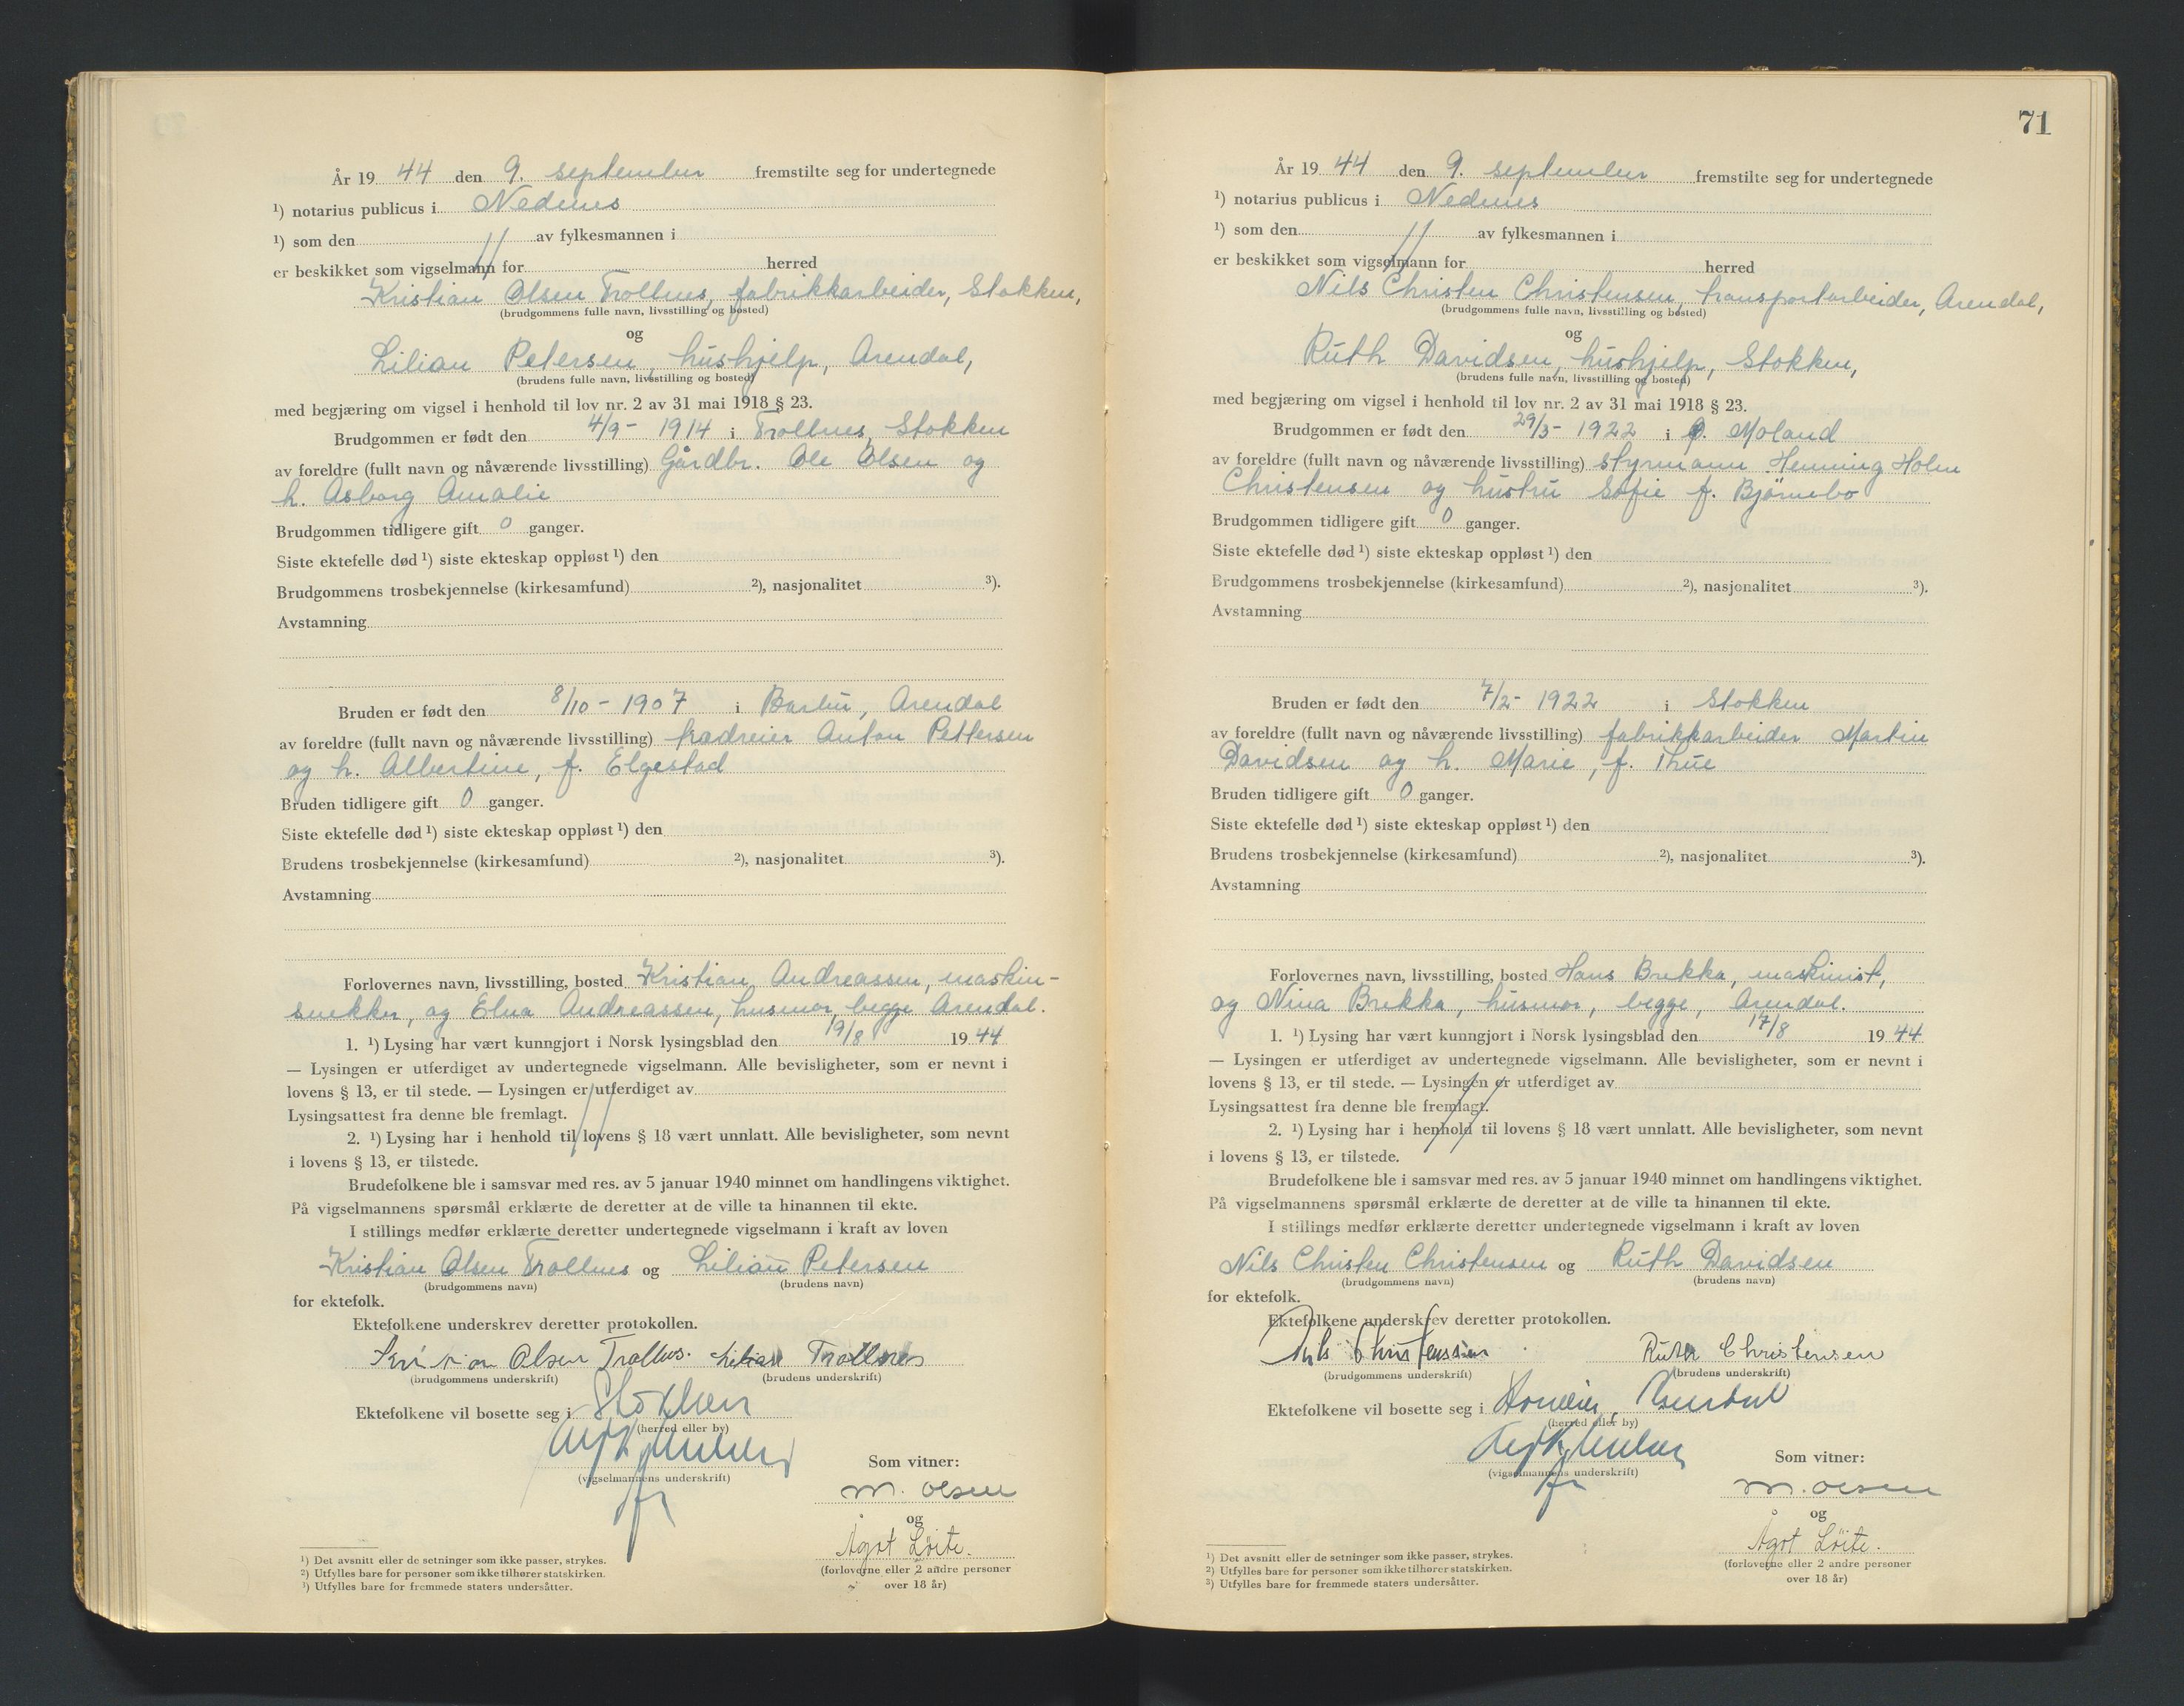 År 19 44 den 9. september fremstilte seg for undertegnede
¹) notarius publicus i Nedenes
¹) som den av fylkesmannen i
er beskikket som vigselmann for herred
Kristian Olsen Trollnes, fabrikkarbeider, Stokken,
(brudgommens fulle navn, livsstilling og bosted)
og
Lilian Petersen, hushjelp, Arendal,
(brudens fulle navn, livsstilling og bosted)
med begjæring om vigsel i henhold til lov nr. 2 av 31 mai 1918 § 23.
Brudgommen er født den 4/9 - 1914 i Trollnes, Stokken
av foreldre (fullt navn og nåværende livsstilling) Gårdbr. Ole Olsen og
h. Asborg Amalie
Brudgommen tidligere gift 0 ganger.
Siste ektefelle død ¹) siste ekteskap oppløst ¹) den
Brudgommens trosbekjennelse (kirkesamfund) ²), nasjonalitet ³).
Avstamning
Bruden er født den 8/10 - 1907 i Barbu, Arendal
av foreldre (fullt navn og nåværende livsstilling) trædreier Anton Pettersen
og h. Albertine, f. Elgestad
Bruden tidligere gift 0 ganger.
Siste ektefelle død ¹) siste ekteskap oppløst ¹) den
Brudens trosbekjennelse (kirkesamfund) ²), nasjonalitet ³).
Avstamning
Forlovernes navn, livsstilling, bosted Kristian Andreassen, maskin-
snekker, og Elna Andreassen, husmor, begge Arendal.
1. ¹) Lysing har vært kunngjort i Norsk lysingsblad den 19/8 19 44
— Lysingen er utferdiget av undertegnede vigselmann. Alle bevisligheter, som er nevnt i
lovens § 13, er til stede. — Lysingen er utferdiget av
Lysingsattest fra denne ble fremlagt.
2. ¹) Lysing har i henhold til lovens § 18 vært unnlatt. Alle bevisligheter, som nevnt
i lovens § 13, er tilstede.
Brudefolkene ble i samsvar med res. av 5 januar 1940 minnet om handlingens viktighet.
På vigselmannens spørsmål erklærte de deretter at de ville ta hinannen til ekte.
I stillings medfør erklærte deretter undertegnede vigselmann i kraft av loven
Kristian Olsen Trollnes og Lilian Petersen
(brudgommens navn) (brudens navn)
for ektefolk.
Ektefolkene underskrev deretter protokollen.
Kristian Olsen Trollnes. Lilian Trollnes
(brudgommens underskrift) (brudens underskrift)
Ektefolkene vil bosette seg i Stokken
(herred eller by)
(vigselmannens underskrift)
Som vitner:
M. Olsen
og
Ågot Löite.
(forloverne eller 2 andre personer
over 18 år)
¹) Det avsnitt eller de setninger som ikke passer, strykes.
²) Utfylles bare for personer som ikke tilhører statskirken.
³) Utfylles bare for fremmede staters undersåtter.
71
År 19 44 den 9. september fremstilte seg for undertegnede
¹) notarius publicus i Nedenes
¹) som den av fylkesmannen i
er beskikket som vigselmann for herred
Nils Christen Christensen, transportarbeider, Arendal,
(brudgommens fulle navn, livsstilling og bosted)
og
Ruth Davidsen, hushjelp, Stokken,
(brudens fulle navn, livsstilling og bosted)
med begjæring om vigsel i henhold til lov nr. 2 av 31 mai 1918 § 23.
Brudgommen er født den 29/3 - 1922 i Ø. Moland
av foreldre (fullt navn og nåværende livsstilling) styrmann Henning Holm
Christensen og hustru Sofie f. Björnebo
Brudgommen tidligere gift 0 ganger.
Siste ektefelle død ¹) siste ekteskap oppløst ¹) den
Brudgommens trosbekjennelse (kirkesamfund) ²), nasjonalitet ³).
Avstamning
Bruden er født den 7/2 - 1922 i Stokken
av foreldre (fullt navn og nåværende livsstilling) fabrikkarbeider Martin
Davidsen og h. Marie, f. Thue
Bruden tidligere gift 0 ganger.
Siste ektefelle død ¹) siste ekteskap oppløst ¹) den
Brudens trosbekjennelse (kirkesamfund) ²), nasjonalitet ³).
Avstamning
Forlovernes navn, livsstilling, bosted Hans Brekka, maskinist,
og Nina Brekka, husmor, begge, Arendal.
1. ¹) Lysing har vært kunngjort i Norsk lysingsblad den 17/8 19 44
— Lysingen er utferdiget av undertegnede vigselmann. Alle bevisligheter, som er nevnt i
lovens § 13, er til stede. — Lysingen er utferdiget av
Lysingsattest fra denne ble fremlagt.
2. ¹) Lysing har i henhold til lovens § 18 vært unnlatt. Alle bevisligheter, som nevnt
i lovens § 13, er tilstede.
Brudefolkene ble i samsvar med res. av 5 januar 1940 minnet om handlingens viktighet.
På vigselmannens spørsmål erklærte de deretter at de ville ta hinannen til ekte.
I stillings medfør erklærte deretter undertegnede vigselmann i kraft av loven
Nils Christen Christensen og Ruth Davidsen
(brudgommens navn) (brudens navn)
for ektefolk.
Ektefolkene underskrev deretter protokollen.
Nils Christensen Ruth Christensen
(brudgommens underskrift) (brudens underskrift)
Ektefolkene vil bosette seg i Arendal
(herred eller by)
(vigselmannens underskrift)
Som vitner:
M. Olsen
og
Ågot Löite.
(forloverne eller 2 andre personer
over 18 år)
¹) Det avsnitt eller de setninger som ikke passer, strykes.
²) Utfylles bare for personer som ikke tilhører statskirken.
³) Utfylles bare for fremmede staters undersåtter.